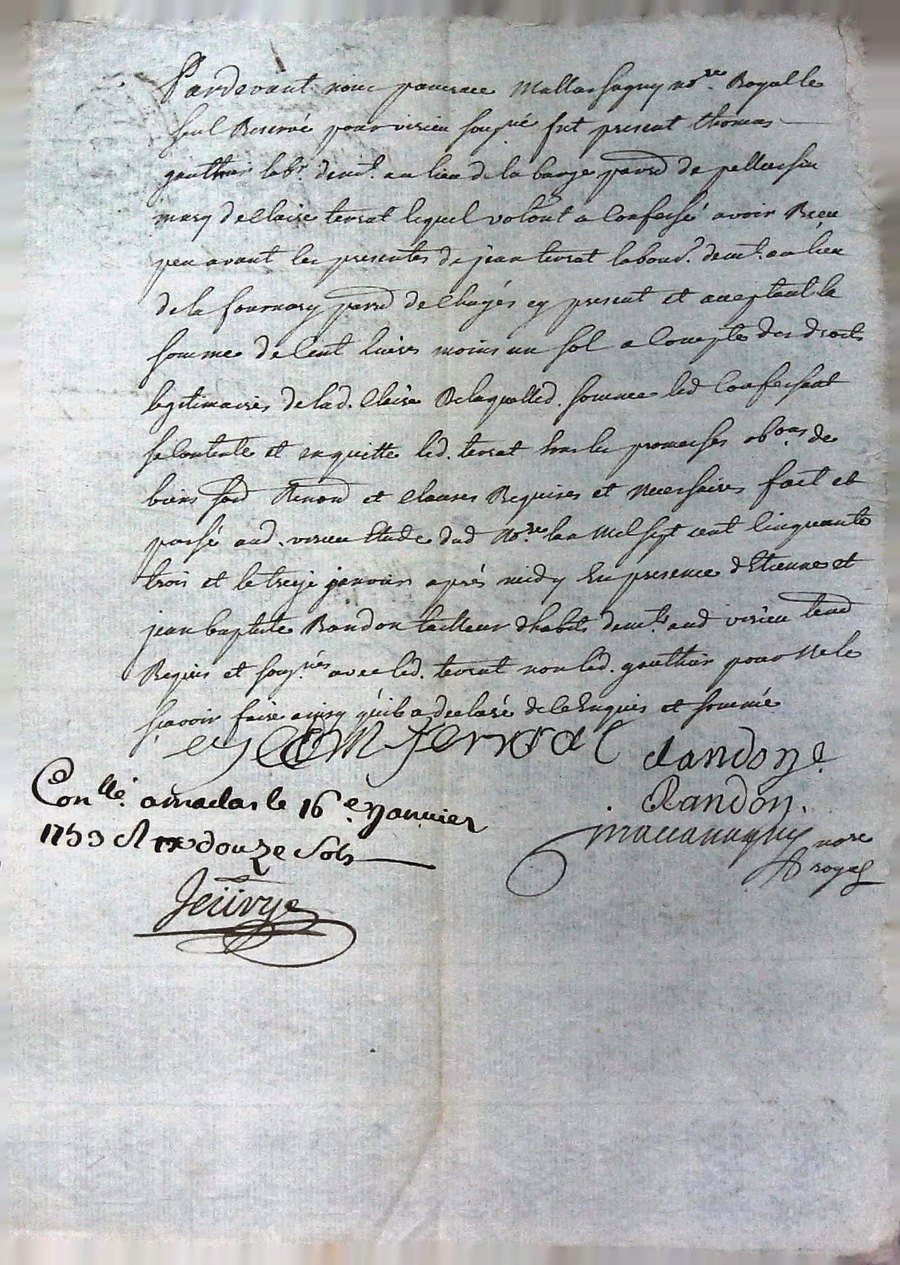 Pardevant nous pancrace Mallassagny no.re Royal le
seul Reservé pour virieu sousg.né fut present thomas
gauthier lab.r demt. au lieu de la barge parr.e de pellussin
mary de Claire terrat lequel volont.t a Confessé avoir Receu
peu avant les presentes de jean terrat labour.r demt. au lieu
de la fournary parr.e de Chuyés cy present et acceptant la
somme de Cent livres moins un sol a Compte des droits
legitimaires de lad. Claire De laquelled. somme led Confessant
se Contente et en quitte led. terrat sous les promesses ob.ons de
biens soud Renond et Clauses Requises et Necessaires fait et
passé aud. virieu Etude dud No.re lan Mil sept cent Cinquante
trois et le treze janvier après midy En presence d'Etienne et
jean baptiste Randon tailleur d'habits demt.s aud virieu temd
Requis et soug.nés avec led. terrat non led. gauthier pour Ne le
sçavoir faire ainsy qu'il a declaré de ce Enquis et sommé
terrat Randon
Randon.
no.re
royal
Con.llé. a le 16.e Janvier
1753 R douze Sols